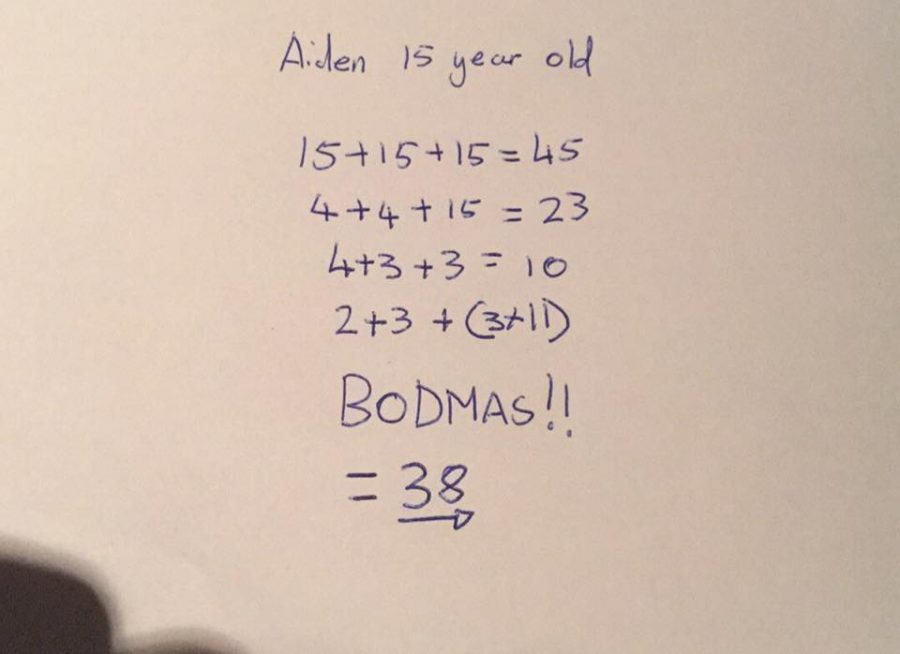 Aiden 15 year old
15+15+15=45
4+4+15=23
4+3+3=10
2+3+(3×11)
BODMAS!!
=38